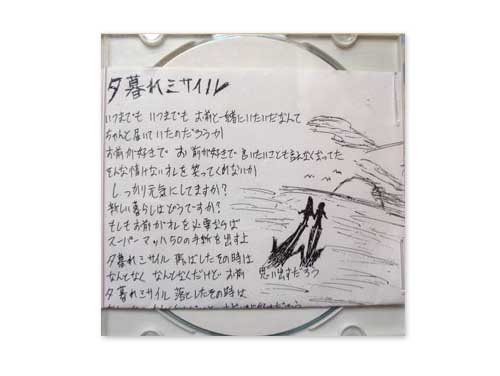 夕暮れミサイル
いつまでも いつまでも お前と一緒にいたいだなんて
ちゃんと届いていたのだろうか
お前が好きで お前が好きで 言いたいことも言えなくなってた
そんな情けないオレを笑ってくれないか
しっかり元気にしてますか?
新しい暮らしはどうですか?
もしもお前がオレを必要ならば
スーパーマッハ50の手紙を出すよ
夕暮れミサイル 飛ばしたその時は
なんとなく なんとなくだけど お前 思い出すだろう
夕暮れミサイル 落としたその時は